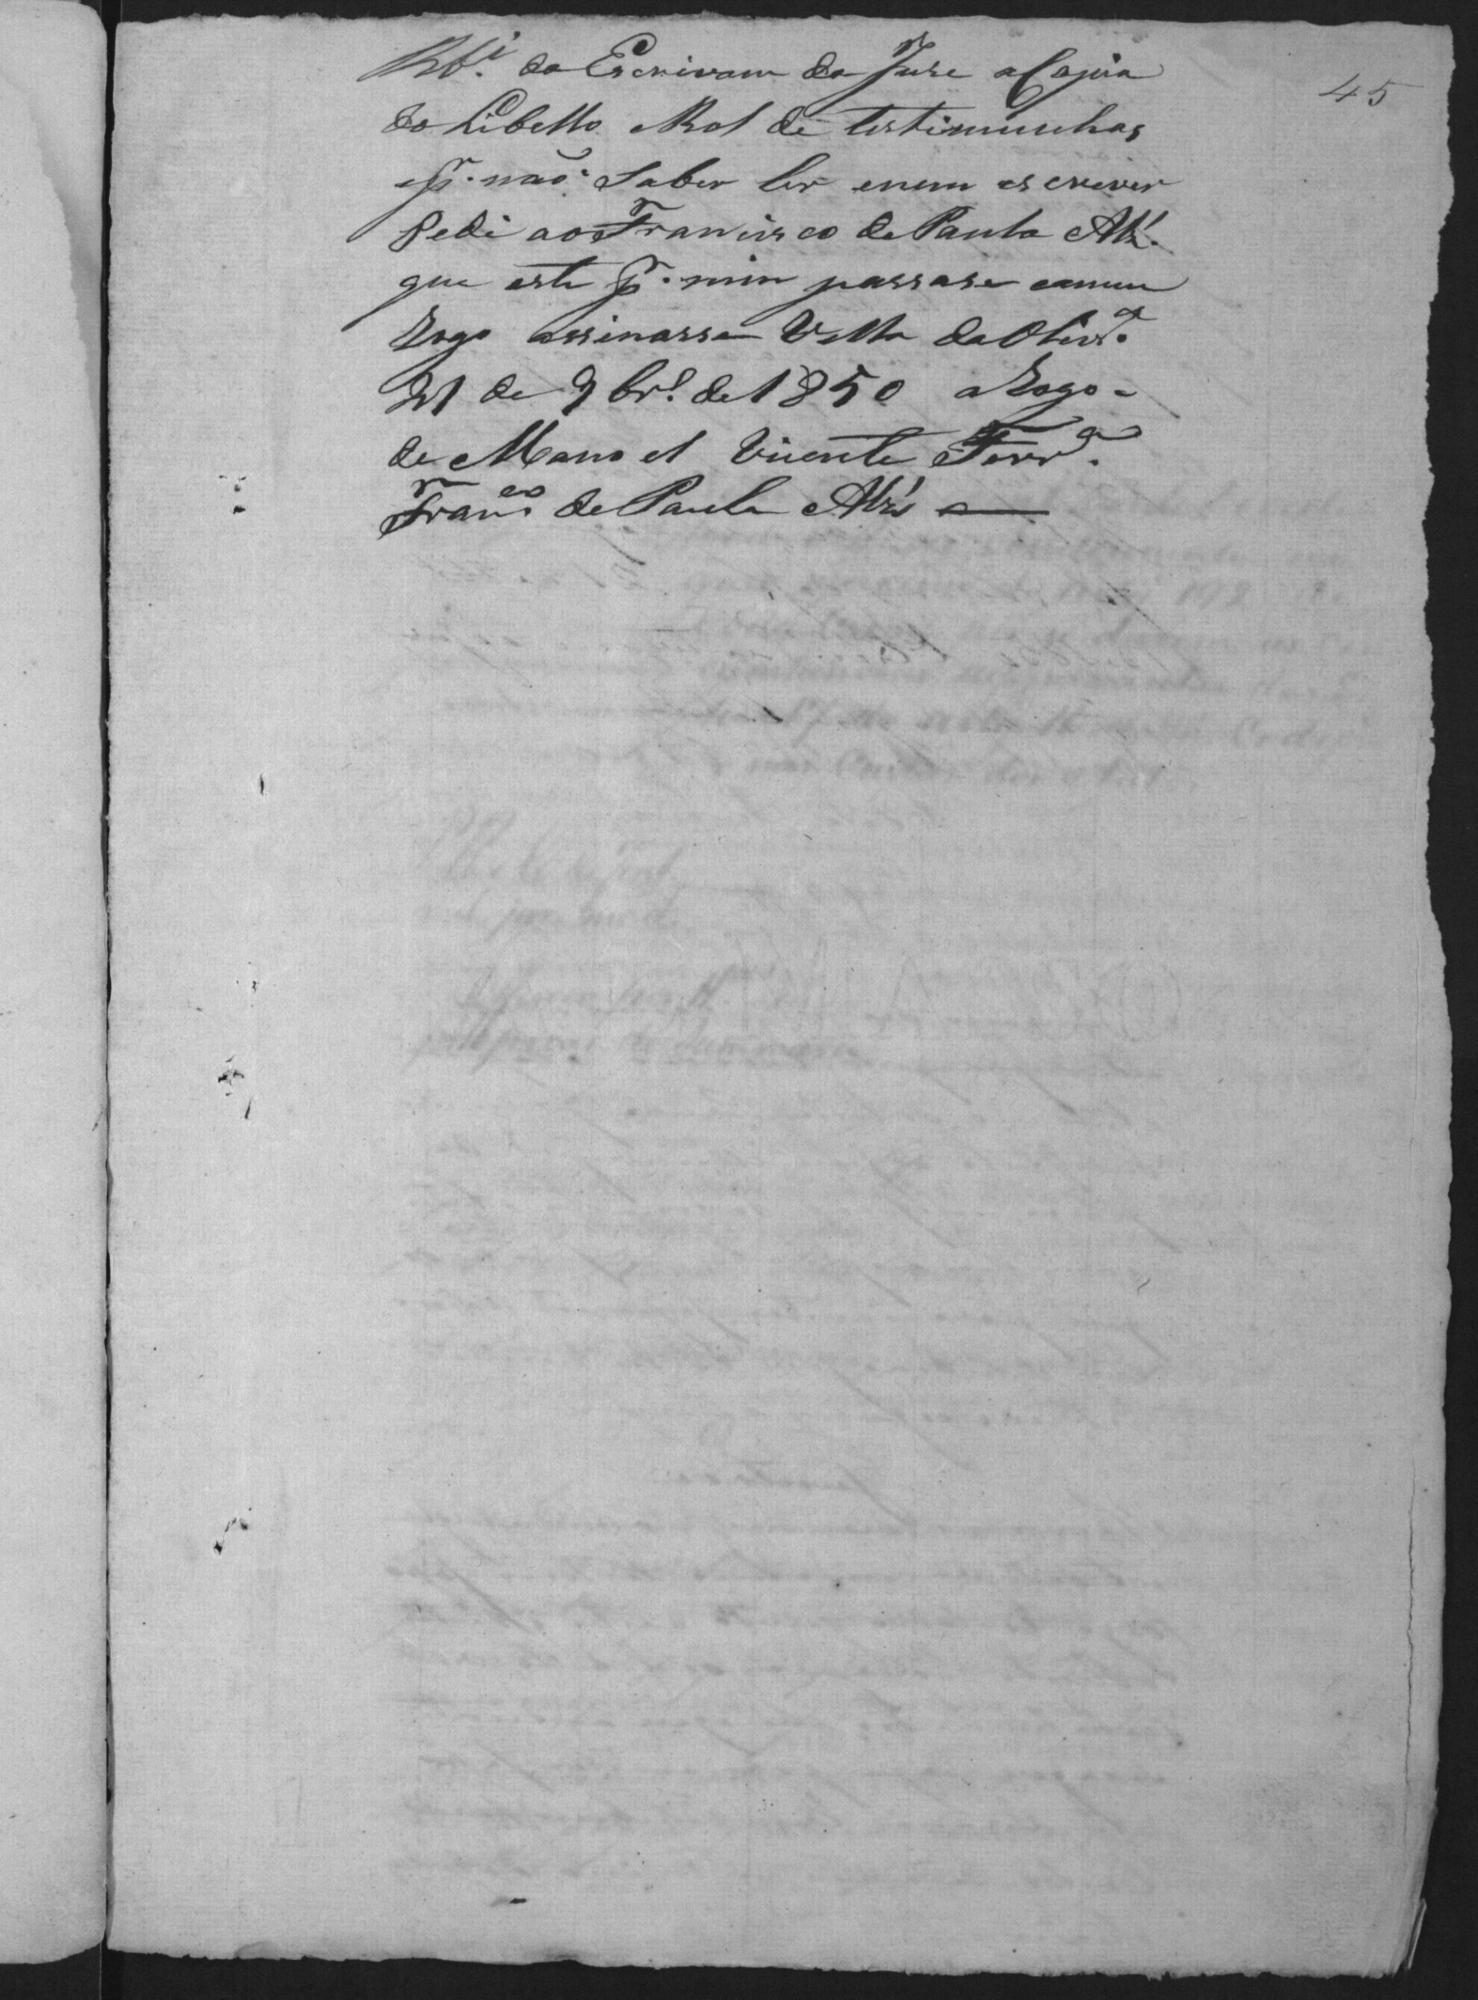 45
Rbi. do Escrivam do Jure a Copia
do Libello e Rol de testimunhas
e pr. não saber ler enem escrever
Pedi ao Sr Francisco de Paula Alz'.
que este pr. mim passase eameu
Rogo assinasse Villa da Olivra.
21 de 9brº. de 1850 a Rogo
de Manoel Vicente Ferra.
Franco. de Paula Alz's